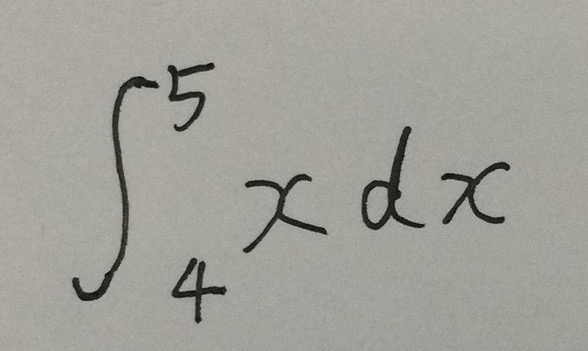 ∫₄⁵ x dx